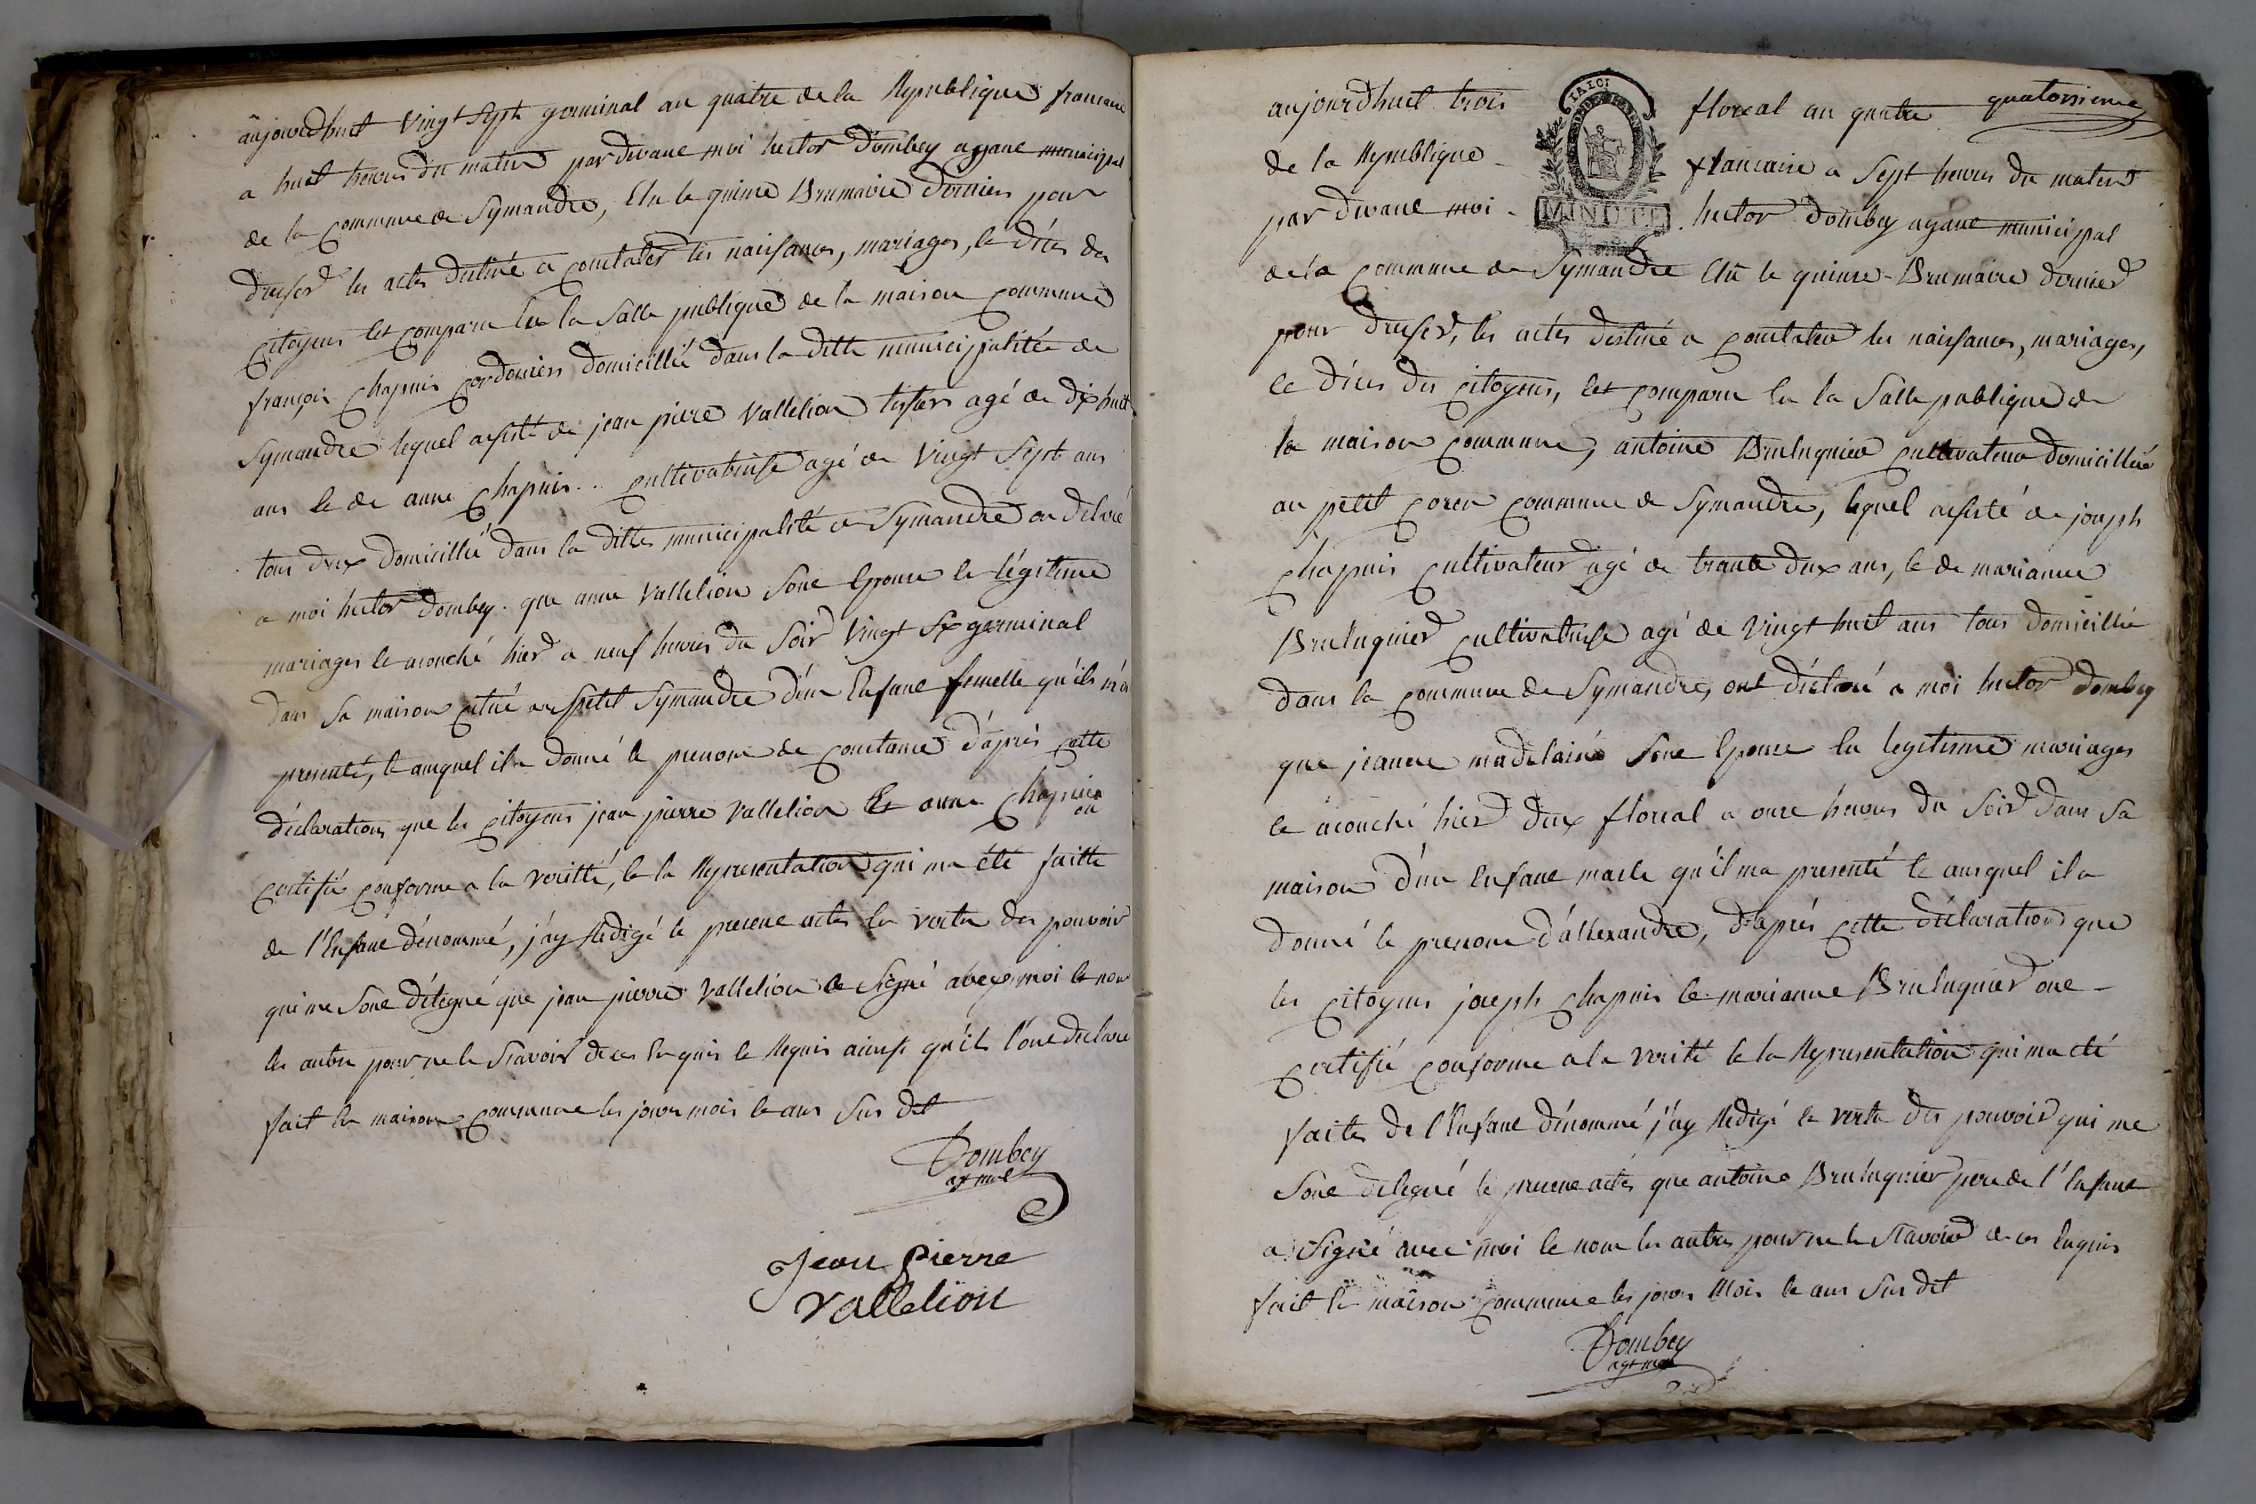 aujourdhuit vingt sept germinal an quatre de la Republique francaise
a huit heures du matin par devane moi hector Dombey agane municipal
de la commune de Symandre, Elu le quinse Brumaire dernier pour
dresser les actes destiné a constater les naissances, mariages, le déces des
citoyens est comparu En la Salle publique de la maison commune
françois chapuis cordonier domicillié dans la ditte municipalitée de
Symandre lequel assisté de jean pierre Vallelion agé de dix huit
ans le de anne chapuis .. cultivatrise agé de vingt Sept ans
tous deux domicillié dans la ditte municipalité de Symandre on déclaré
a moi hector dombey. que anne vallelion Sone Epouse le légitime
mariages le acouché hier a neuf heures du Soir vingt Six germinal
dans Sa maison citué au petit Symandre d'un Enfane femelle qu'ils m'a
presenté, le auquel il a donné le prenom de constance d'après cette
déclaration que les citoyens jean pierre vallelion Et anne chapuis on
certifié conforme a la veritté, le la Representation qui ma été faitte
de l'Enfane dénommé, j'ay Redigé le presene actes En vertu des pouvoir
qui me Sone délégué que jean pierre vallelion a Signé avec moi le non
les autre pour ne le Scavoir de ces Enquis le Requis ainsi qu'ils l'one declare
fait En maison commune les jour mois le ans Sus dit
Dombey
agt mal
Jean pierre
vallelion
quatorsieme
aujourdhuit trois floreal an quatre
de la Republique francaise a Sept heures du matin
par devane moi hector Dombey agane municipal
MINUTE
de la commune de Symandre Elû le quinse Brumaire dernier
pour dresser, les actes destiné a constater les naissances, mariages,
le déces des citoyens, est comparu En la Salle publique de
la maison commune, antoine Brulnquier cultivateur domicillié
au petit coren commune de Symandre, lequel assisté de joseph
chapuis cultivateur agé de trante deux ans, le de marianne
Brulnquier cultivatrise agé de vingt huit ans tous domicillié
dans la commune de Symandre, ont déclaré a moi hector dombey
que jeanne madelaine Sone Epouse En legitime mariages
le acouché hier deux floreal a onze heures du Soir dans Sa
maison d'un Enfane masle qu'il ma presenté le auquel il a
donné le prenom d'allexandre, d'après cette déclaration que
les citoyens joseph chapuis le marianne Brulnquier one
certifié conforme a la verité le la Representation qui ma été
faites de l'Enfane dénommé j'ay Redigé En vertu des pouvoir qui me
Sone delegué le presene actes que antoine Brulnquier pere de l'Enfane
a Signé avec moi le none les autres pour ne le Scavoir de ces Enquis
fait En maison commune les jour Mois le ans Sus dit
Dombey
agt mal